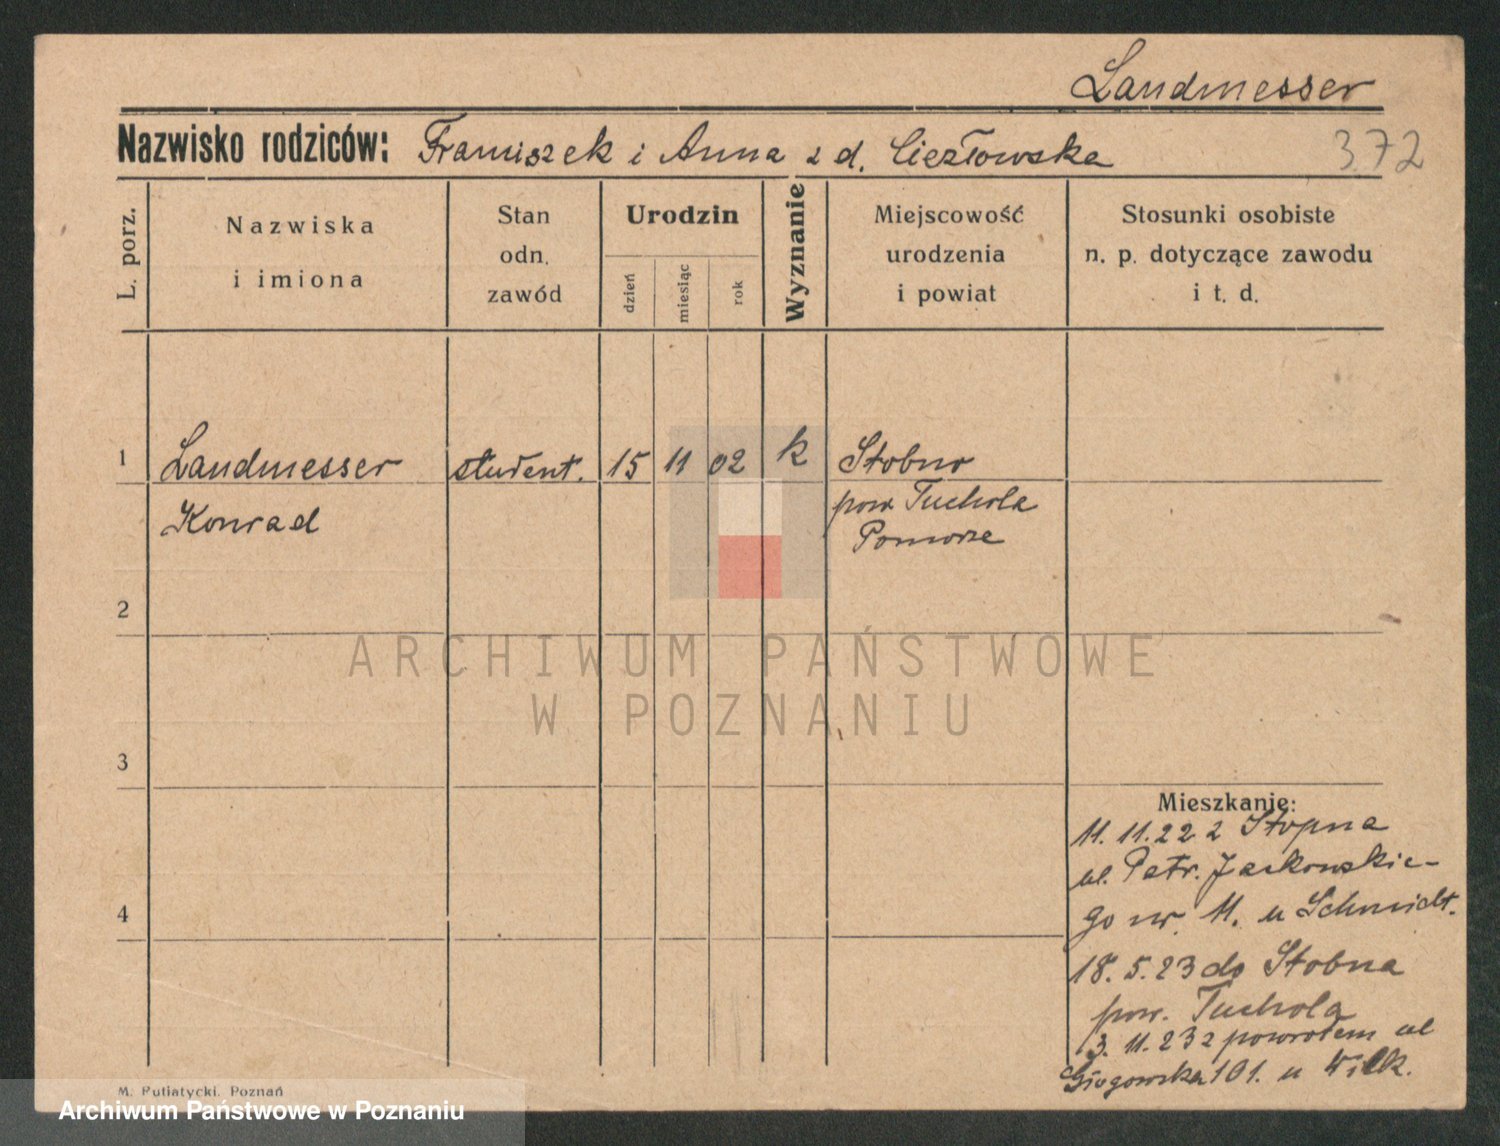 Landmesser
Nazwisko rodziców: Franciszek i Anna z d. Ciezłowska
372
L. porz.
Nazwiska
i imiona
Stan
odn.
zawód
Urodzin
dzień
miesiąc
rok
Wyznanie
Miejscowość
urodzenia
i powiat
Stosunki osobiste
n. p. dotyczące zawodu
i t. d.
1 Landmesser student. 15 11 02 k Stobno
Konrad pow. Tuchola
Pomorze
2
3
4
Mieszkanie:
11.11.22 z Stopna
ul. Patr. Jackowskie-
go nr. 11. u Schmidt.
18.5.23 do Stobna
pow. Tuchola
3.11.23 z powrotem ul
Głogowska 101. u Wilk.
M. Putiatycki, Poznań
ARCHIWUM PAŃSTWOWE
W POZNANIU
Archiwum Państwowe w Poznaniu